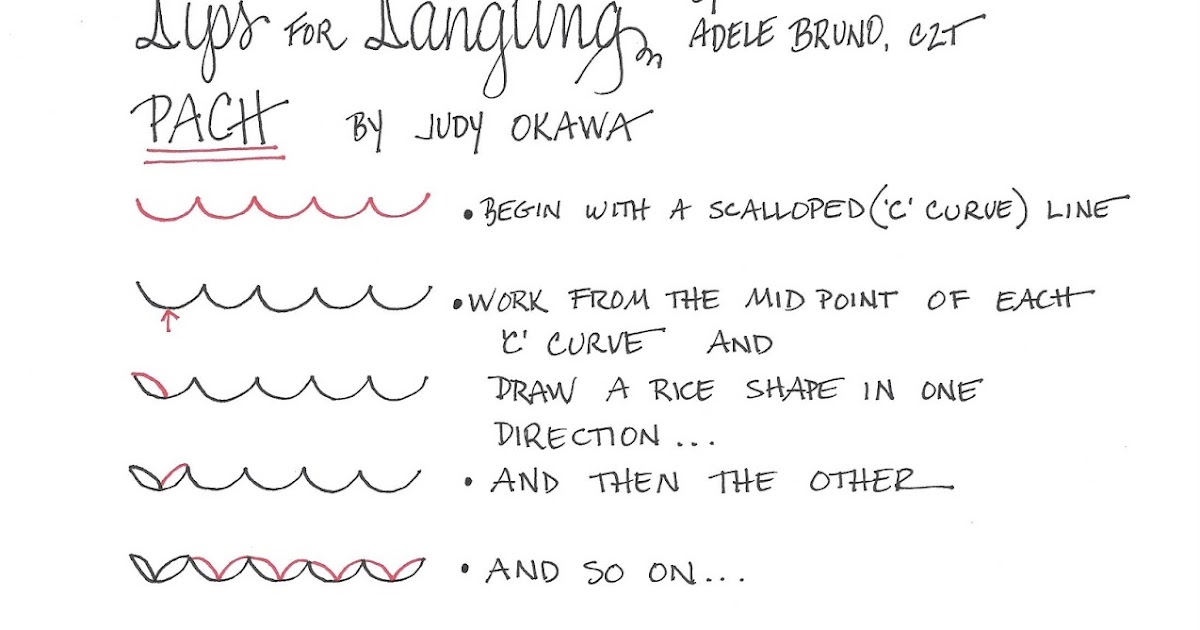 Tips FOR Tangling
ADELE BRUNO, CZT
PACH BY JUDY OKAWA
• BEGIN WITH A SCALLOPED ('C' CURVE) LINE
• WORK FROM THE MID POINT OF EACH
'C' CURVE AND
DRAW A RICE SHAPE IN ONE
DIRECTION...
• AND THEN THE OTHER
• AND SO ON...